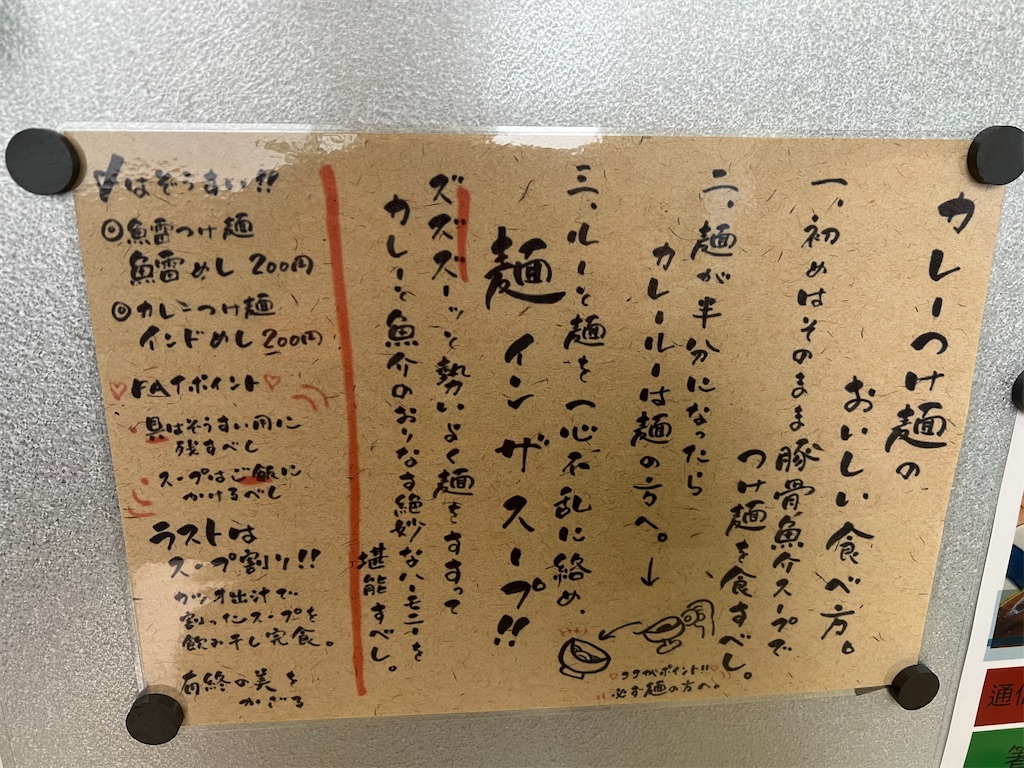 カレーつけ麺の
おいしい食べ方。
一、初めはそのまま豚骨魚介スープで
つけ麺を食すべし。
二、麺が半分になったら
カレールーは麺の方へ。→
ココがポイント!!
必ず麺の方へ。
三、ルーと麺を一心不乱に絡め、
麺インザスープ!!
ズズズーッと勢いよく麺をすすって
カレーと魚介のおりなす絶妙なハーモニーを
堪能すべし。
〆はぞうすい!!
◎魚雷つけ麺
魚雷めし 200円
◎カレーつけ麺
インドめし 200円
♡FAイポイント♡
具はぞうすい用に
残すべし
スープはご飯に
かけるべし
ラストは
スープ割り!!
カツオ出汁で
割ったスープを
飲み干し完食。
有終の美を
かざる
通信
箸